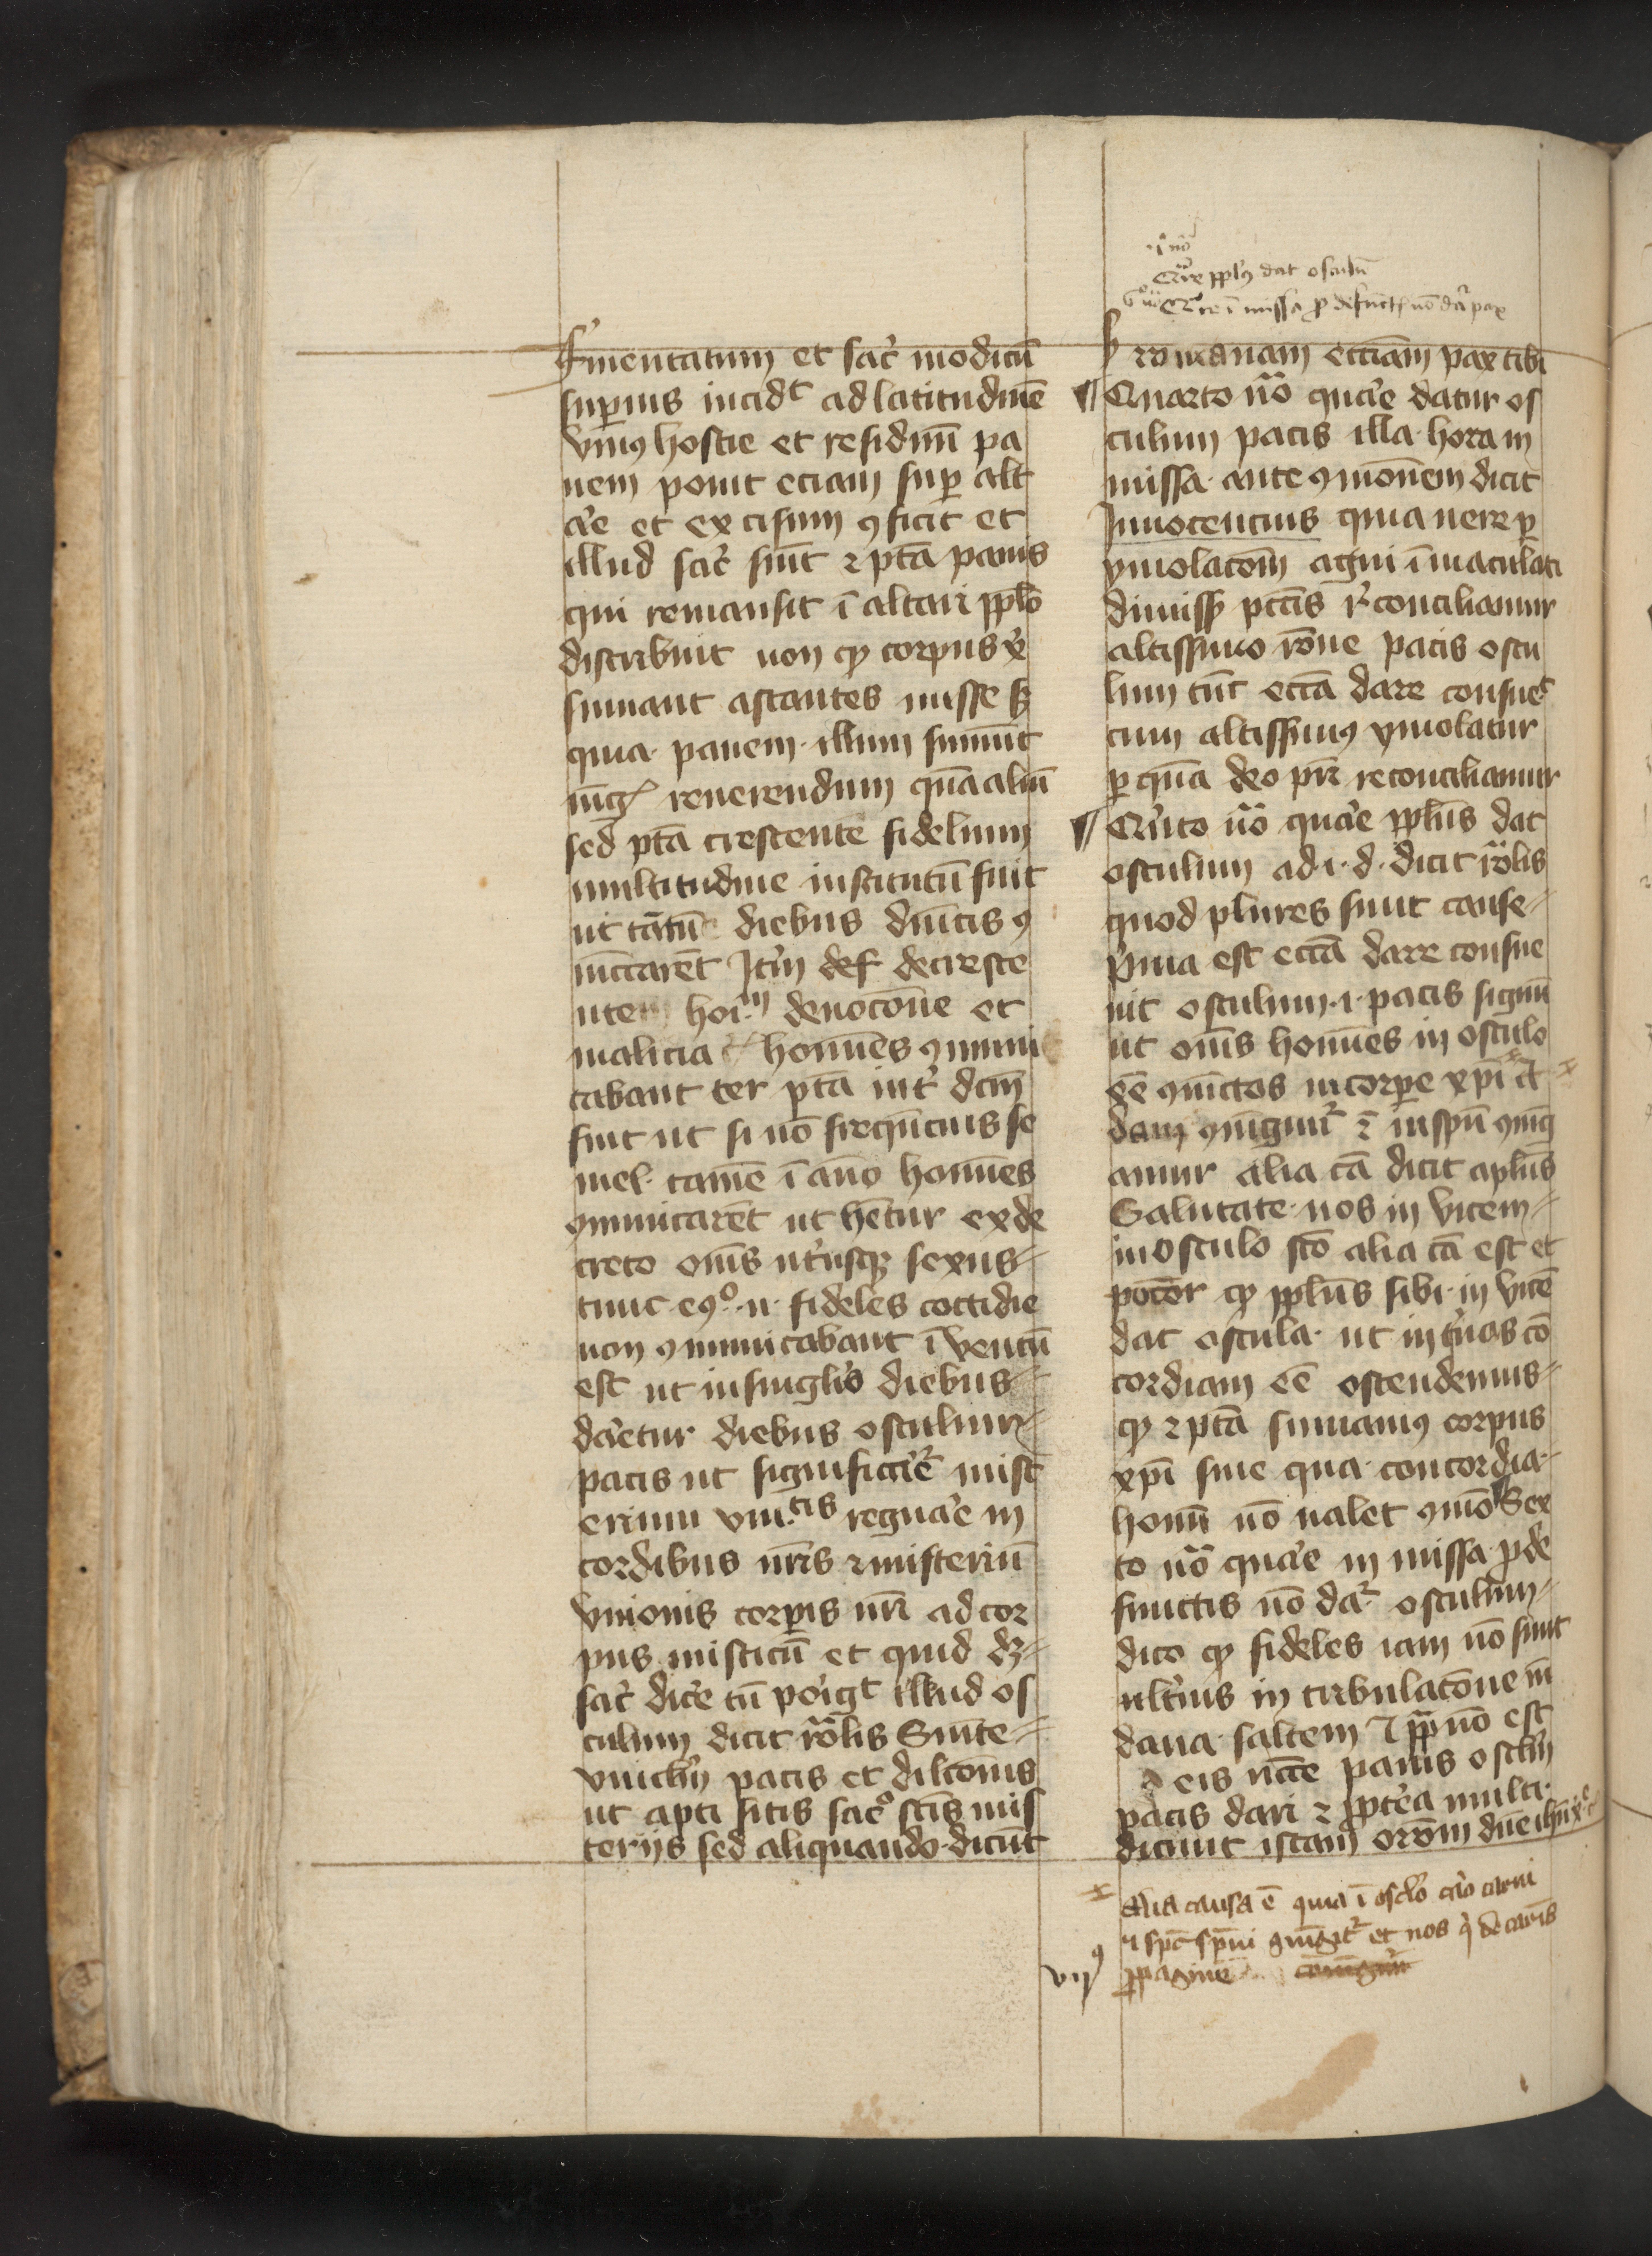 fm̄entatum et sac̾ modicū
sup̱ius incidt ad latitudinē
vniꝰ hostie et residuū pa
nem ponit eciam sup̱ alt
a̾e et excisum ꝯficit et
illud sac̾ sūt ⁊ pt̄a panis
qui remansit ī altari ppl̄o
distribuit non qꝫ corpus xͥ
sumant astantes misse sꝫ
quia panem illum sumūt
mag̾ reuerendum quā aliū
sed pt̄a crescente fidelium
multitudine institutū fuit
ut tātū diebus dn̄icis ꝯ
mūicarēt It̾m def decresce
nte hoīm deuoc̄one et
malicia homīes ꝯmuni
cabant ter pt̄a int̾ dcm̄
fuit ut si nō freq̄ncius se
mel tamē ī āno homīes
ꝯmūicarēt ut hētur ex de
creto om̄s ut̾usqꝫ sexus
tunc eꝯͦ n fideles cottidie
non ꝯmunicabant īventū
est ut in singl̾is diebus
da̾etur diebus osculum
pacis ut significa̾et̾ mist
erium vnitatis regna̾e in
cordibus nr̄is ⁊ misteriū
vnionis corp̱is nr̄i ad cor
pus misticū et quid dꝫ
sac̾ dic̾e cū porigt illud os
culum dicit rōlis Sinite
vinclm̄ pacis et dilc̄onis
ut apti sitis sacͦ scīs mis
teriis sed aliquando dicūt
ī nō
Qua̾e ppl̾s dat osculū
Qua̾e ī missa ꝓ defūct nō da̾ pax
romanam ecc̄iam pax tibi
Quarto nō qua̾e datur os
culum pacis illa hora in
missa ante ꝯmonēm dicit
Innocencius quia uere p̱
ymolac̄om̄ agni īmaculati
dimiss̾ pcc̄is r̾conciliamur
altissimo rōne pacis oscu
lum tūc ecc̄a dare consueͭ
cum altissimꝰ ymolatur
p̱ quā deo pr̄i reconciliamur
Qu̾nto nō qua̾e ppl̄us dat
osculum ad i d dicit rōlis
quod plures sunt cause
pͥma est ecc̄a dare consue
uit osculum .i. pacis signū
ut om̄s homīes in osculo
eē ꝯuīctos in corp̱e xp̄i A
dam ꝯiūgim̾ ⁊ in spū ꝯiūg
amur alia cā dicit apl̄us
Salutate uos in vicem
in osculo scō alia cā est et
pocōr qꝫ ppl̄us sibi in vicē
dat oscula ut int̾ nos cō
cordiam eē ostendemus
qꝫ ⁊ pt̄a sumamꝰ corpus
xp̄i sine qua concordia
hoīm nō ualet ꝯmō Sex
to nō qua̾e in missa ꝓ de
functis nō da̾ osculum
dico qꝫ fideles iam nō sunt
ult̾ius in tribulac̄one mū
dana saltem ⁊ ꝓp nō est
eis nc̄c̄e panis osclm̄
pacis dari ⁊ ꝓpt̾ea multi
dicunt istam or̄om̄ dn̄e ihū xͤ
Alia causa ē quia ī osclo caro carni
⁊ spc spūi ꝯiūgit̾ et nos qͥ de carnis
ꝓpagine coniūgim̾
vijꝰ